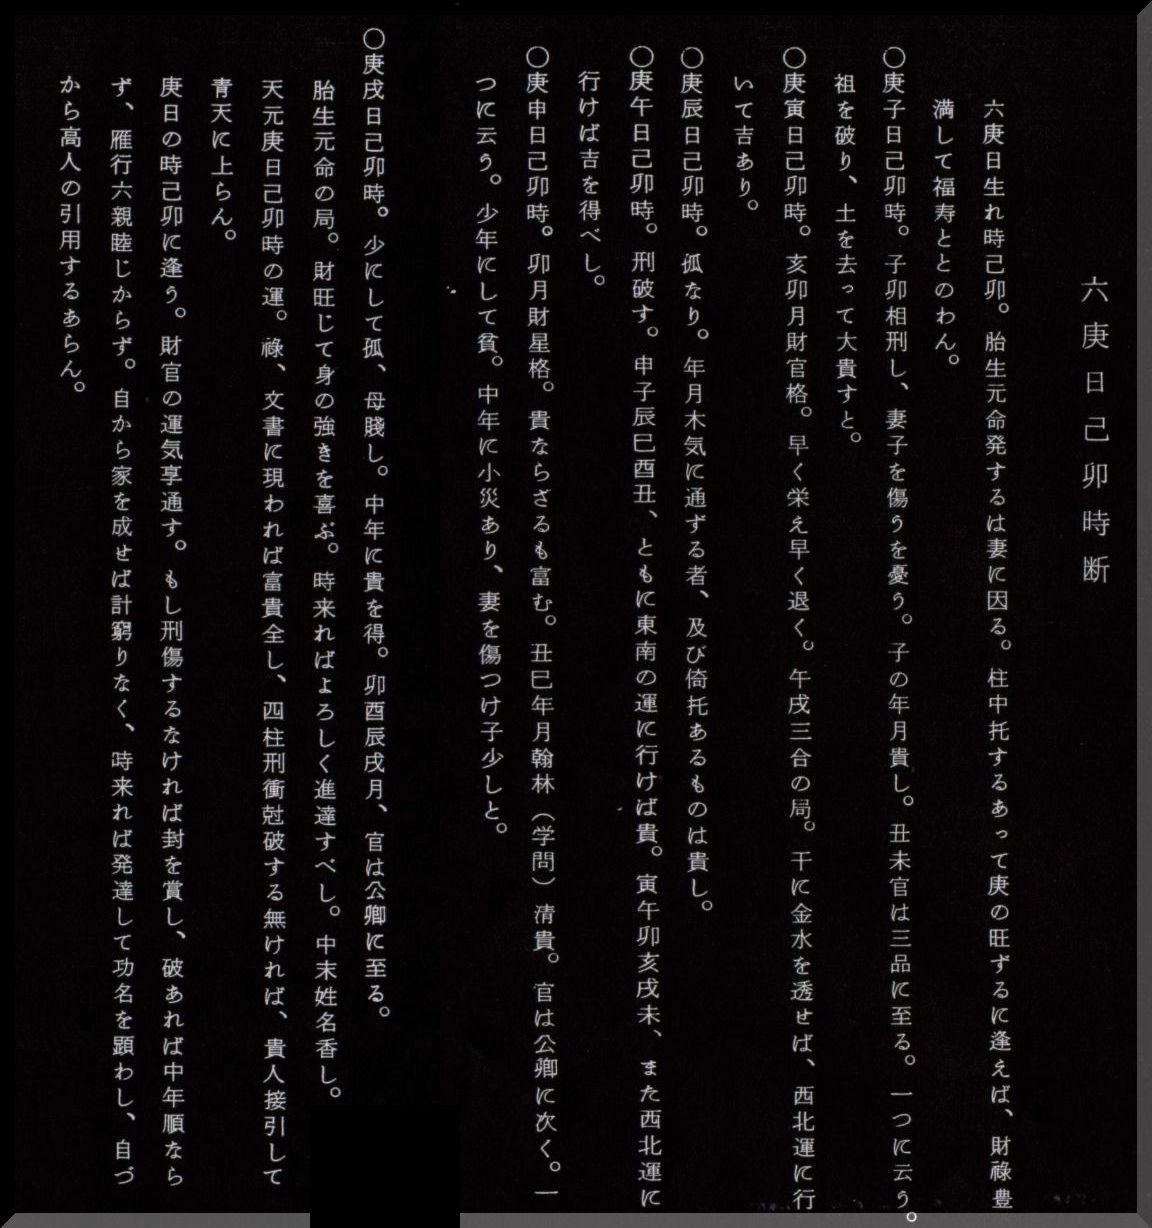 六庚日己卯時断
六庚日生れ時己卯。胎生元命発するは妻に因る。柱中托するあって庚の旺ずるに逢えば、財祿豊
満して福寿ととのわん。
〇庚子日己卯時。子卯相刑し、妻子を傷うを憂う。子の年月貴し。丑未官は三品に至る。一つに云う。
祖を破り、土を去って大貴すと。
〇庚寅日己卯時。亥卯月財官格。早く栄え早く退く。午戌三合の局。干に金水を透せば、西北運に行
いて吉あり。
〇庚辰日己卯時。孤なり。年月木気に通ずる者、及び倚托あるものは貴し。
〇庚午日己卯時。刑破す。申子辰巳酉丑、ともに東南の運に行けば貴。寅午卯亥戌未、また西北運に
行けば吉を得べし。
〇庚申日己卯時。卯月財星格。貴ならざるも富む。丑巳年月翰林（学問）清貴。官は公卿に次く。一
つに云う。少年にして貧。中年に小災あり、妻を傷つけ子少しと。
〇庚戌日己卯時。少にして孤、母賤し。中年に貴を得。卯酉辰戌月、官は公卿に至る。
胎生元命の局。財旺じて身の強きを喜ぶ。時来ればよろしく進達すべし。中末姓名香し。
天元庚日己卯時の運。祿、文書に現われば富貴全し、四柱刑衝尅破する無ければ、貴人接引して
青天に上らん。
庚日の時己卯に逢う。財官の運気享通す。もし刑傷するなければ封を賞し、破あれば中年順なら
ず、雁行六親睦じからず。自から家を成せば計窮りなく、時来れば発達して功名を顕わし、自づ
から高人の引用するあらん。